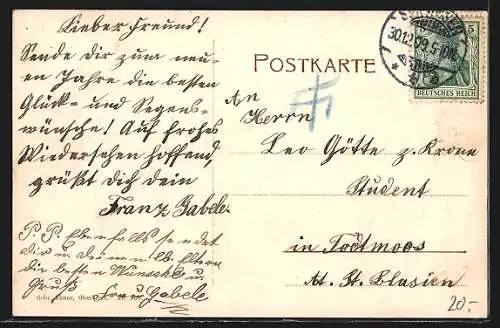 Lieber Freund!
Sende dir zum neu-
en Jahre die besten
Glück- und Segens-
wünsche! Auf frohes
Wiedersehen hoffend,
grüßt dich dein
Franz Gabele.
P.P. Ebenfalls sendet
dir u. deinen lb. Eltern
die besten Wünsche u.
Gruß Frau Gabele
POSTKARTE
30.12.09.5-
5
DEUTSCHES REICH
An
Herrn
Leo Götte z. Krone
Student
in Todtmoos
At. St. Blasien
20.-